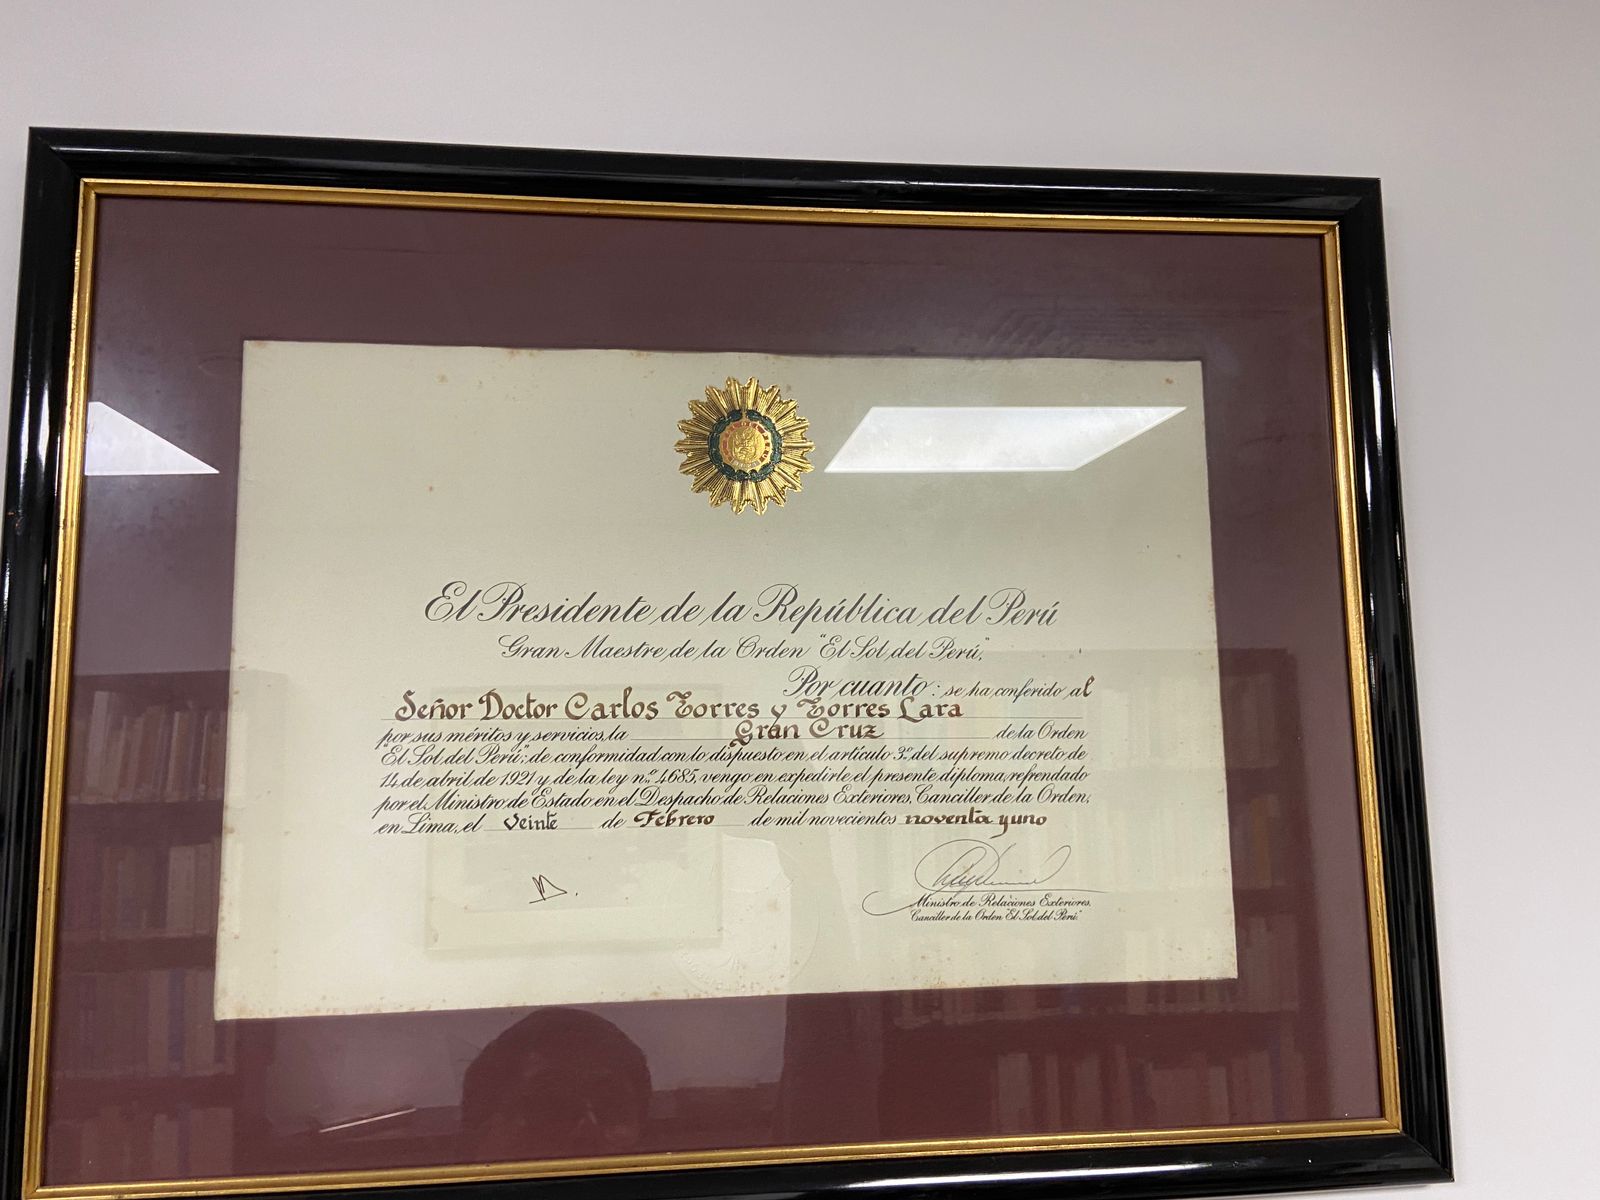 El Presidente de la República del Perú
Gran Maestre de la Orden "El Sol del Perú",
Por cuanto: se ha conferido al
Señor Doctor Carlos Torres y Torres Lara
por sus méritos y servicios, la Gran Cruz de la Orden
"El Sol del Perú"; de conformidad con lo dispuesto en el artículo 3º del supremo decreto de
14 de abril de 1921 y de la ley n.º 4685, vengo en expedirle el presente diploma, refrendado
por el Ministro de Estado en el Despacho de Relaciones Exteriores, Canciller de la Orden,
en Lima, el Veinte de Febrero de mil novecientos noventa y uno
Ministro de Relaciones Exteriores.
Canciller de la Orden "El Sol del Perú"